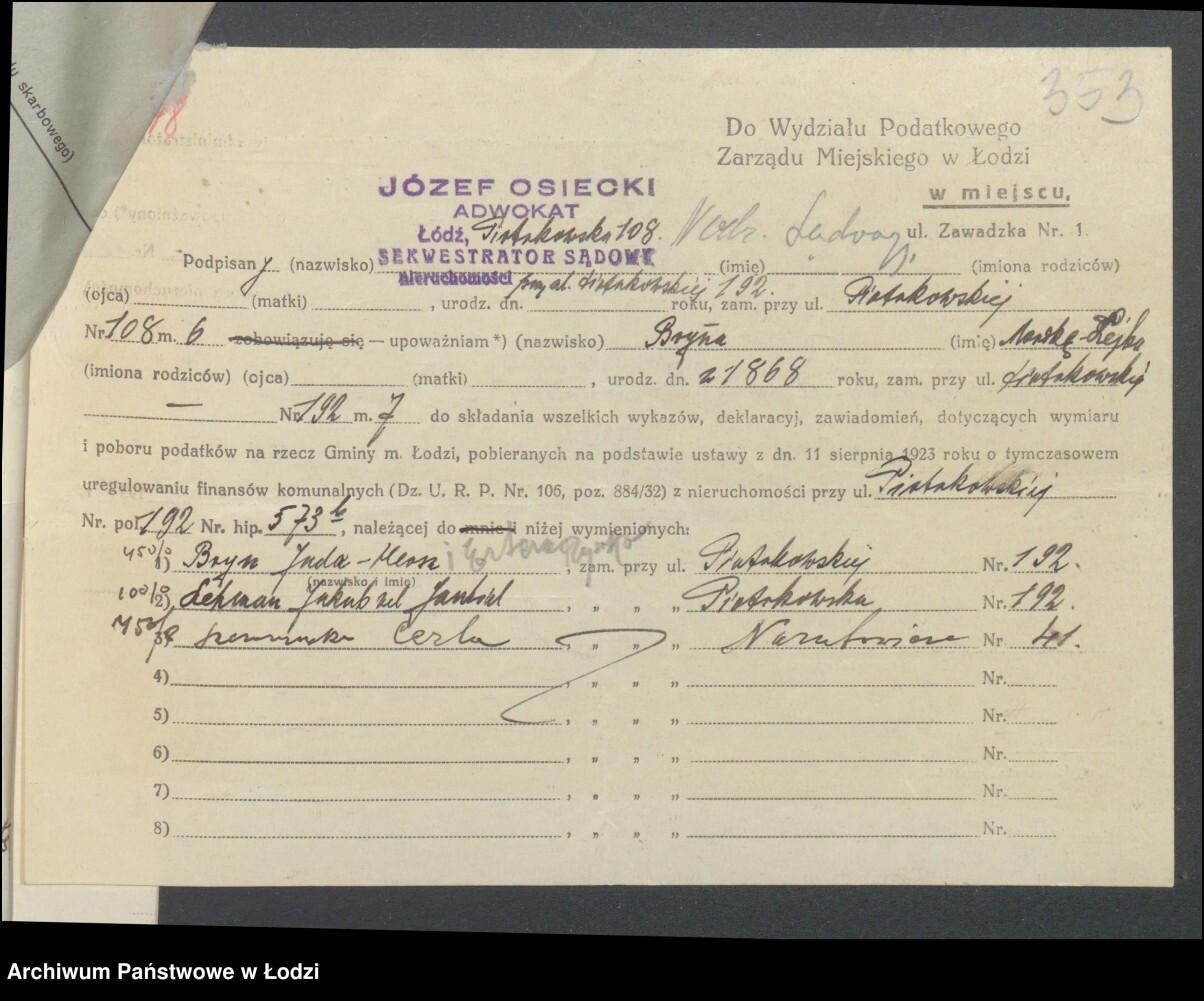 353
u skarbowego)
Do Wydziału Podatkowego
Zarządu Miejskiego w Łodzi
w miejscu,
ul. Zawadzka Nr. 1.
JÓZEF OSIECKI
ADWOKAT
Łódź, Piotrkowska 108.
SEKWESTRATOR SĄDOWY
nieruchomości przy ul. Piotrkowskiej 192.
Podpisany (nazwisko) (imię) (imiona rodziców)
(ojca) (matki) , urodz. dn. roku, zam. przy ul. Piotrkowskiej
Nr. 108 m. 6 zobowiązuję się — upoważniam *) (nazwisko) Bryna (imię)
(imiona rodziców) (ojca) (matki) , urodz. dn. 1868 roku, zam. przy ul. Piotrkowskiej
— Nr. 192 m. 7 do składania wszelkich wykazów, deklaracyj, zawiadomień, dotyczących wymiaru
i poboru podatków na rzecz Gminy m. Łodzi, pobieranych na podstawie ustawy z dn. 11 sierpnia 1923 roku o tymczasowem
uregulowaniu finansów komunalnych (Dz. U. R. P. Nr. 106, poz. 884/32) z nieruchomości przy ul. Piotrkowskiej
Nr. pol. 192 Nr. hip. 573 b, należącej do mnie i niżej wymienionych:
45% 1) Bryn Juda-Mosz , zam. przy ul. Piotrkowskiej Nr. 192.
(nazwisko i imię)
10% 2) Lehman Jakub , „ „ „ Piotrkowska Nr. 192.
45% 3) Cerla , „ „ „ Narutowicza Nr. 41.
4) , „ „ „ Nr.
5) , „ „ „ Nr.
6) , „ „ „ Nr.
7) , „ „ „ Nr.
8) , „ „ „ Nr.
Archiwum Państwowe w Łodzi